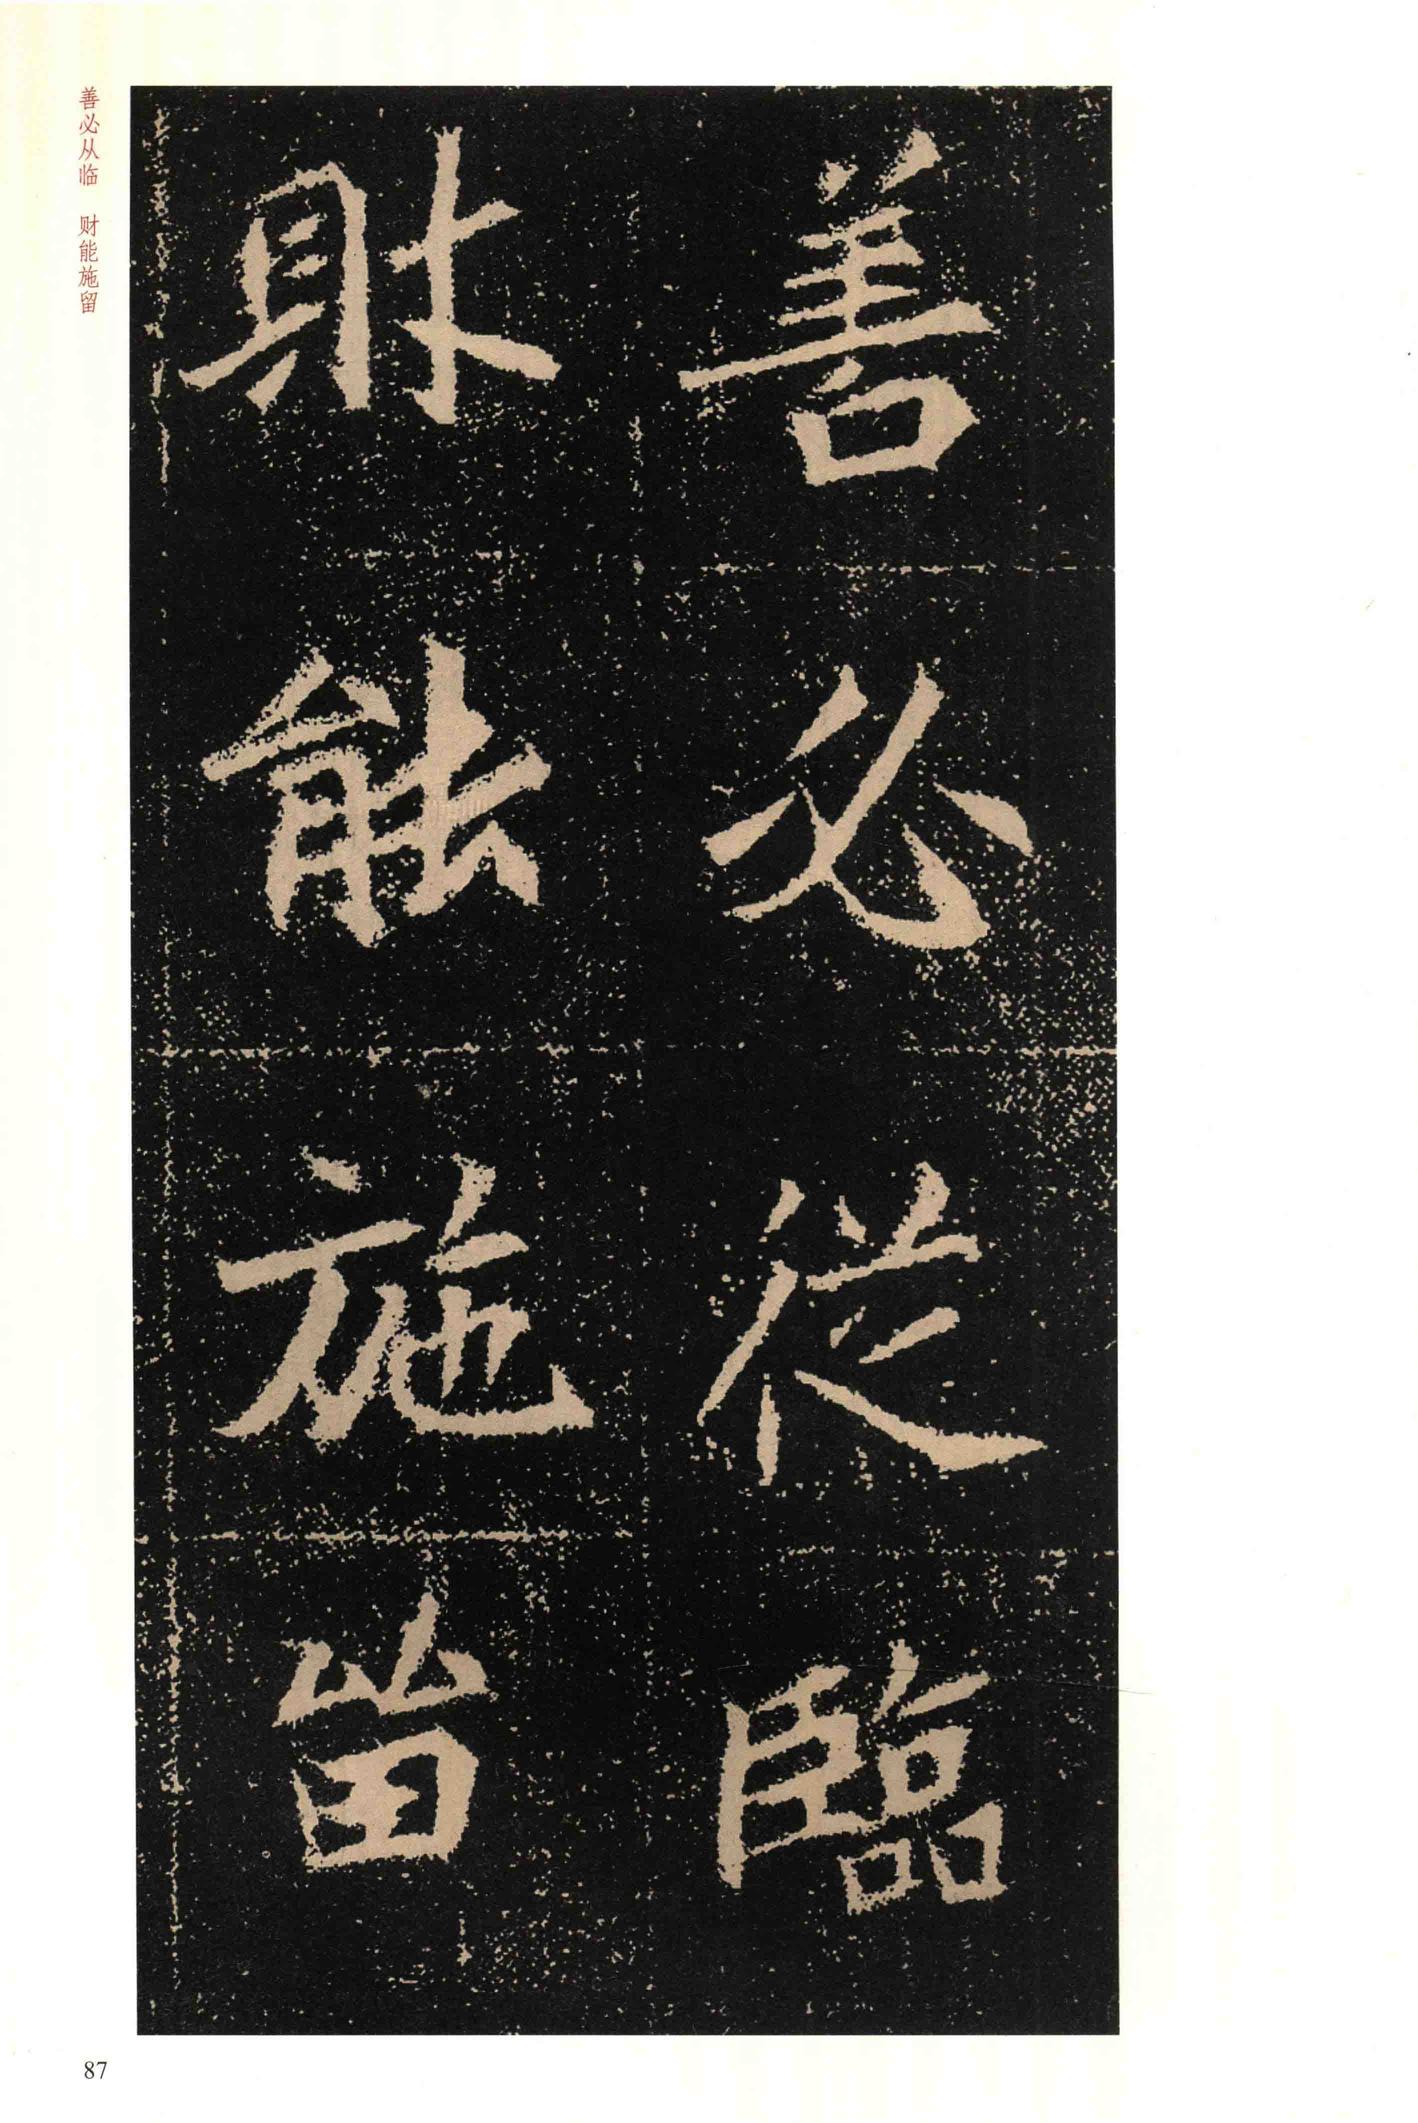 善必從臨
財能施留
善必从临　财能施留
87